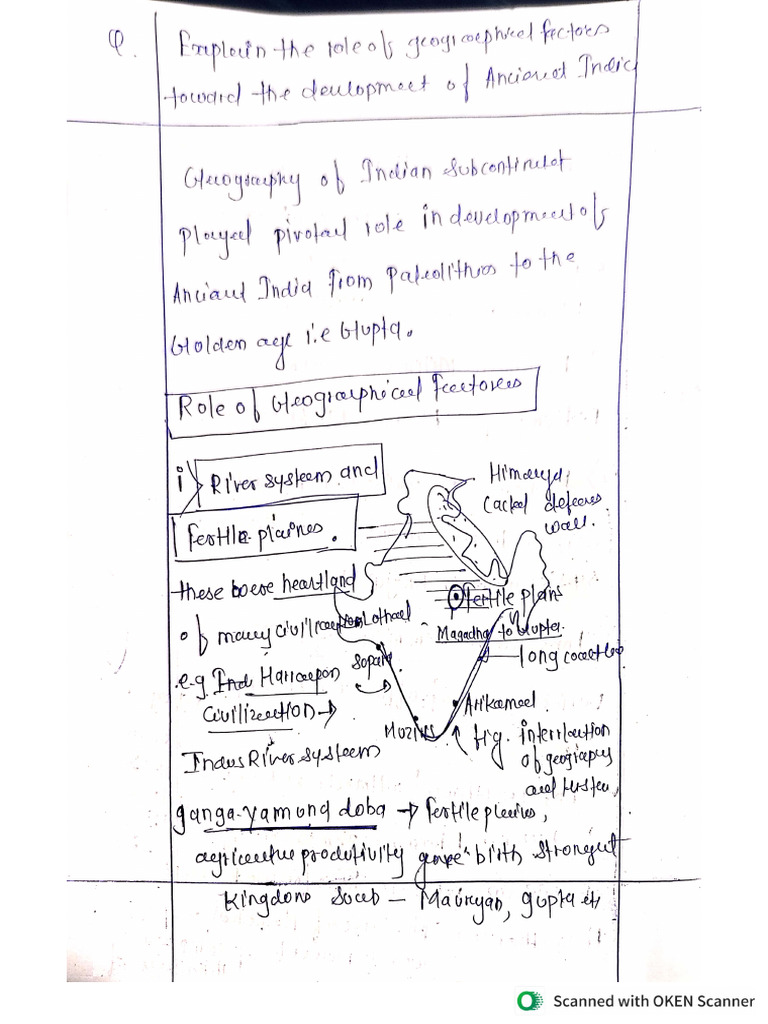 Q. Explain the role of geographical factors
toward the development of Ancient India
Geography of Indian Subcontinent
played pivotal role in development of
Ancient India from Paleolithos to the
Golden age i.e Gupta.
Role of Geographical factores
i) River system and
fertile plaines.
Himalaya
acted defence
wall.
these were heartland
of many civilization
Lothal
fertile plans
Magadha to Gupta.
long coastline
e.g. Ind Harrapan
Sopara
civilization →
Arikamed
Muziris
fig. interrlaction
of geography
and history
Indus River system
ganga-yamuna doba → fertile plains,
agriculture produtivity gave birth strongest
Kingdoms such – Mauryan, gupta etc
Scanned with OKEN Scanner